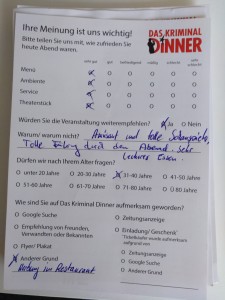 Ihre Meinung ist uns wichtig!
DAS KRIMINAL
DINNER
Bitte teilen Sie uns mit, wie zufrieden Sie
heute Abend waren.
sehr gut gut befriedigend mäßig schlecht sehr schlecht
Menü
Ambiente
Service
Theaterstück
Würden Sie die Veranstaltung weiterempfehlen? Ja Nein
Warum/ warum nicht? und tolle Schauspieler,
Tolle durch den Abend. Sehr
leckeres Essen.
Dürfen wir nach Ihrem Alter fragen?
unter 20 Jahre 20-30 Jahre 31-40 Jahre 41-50 Jahre
51-60 Jahre 61-70 Jahre 71-80 Jahre über 80 Jahre
Wie sind Sie auf Das Kriminal Dinner aufmerksam geworden?
Google Suche
Empfehlung von Freunden,
Verwandten oder Bekannten
Flyer/ Plakat
Anderer Grund
im Restaurant
Zeitungsanzeige
Einladung/ Geschenk
Zeitungsanzeige
Google Suche
Anderer Grund